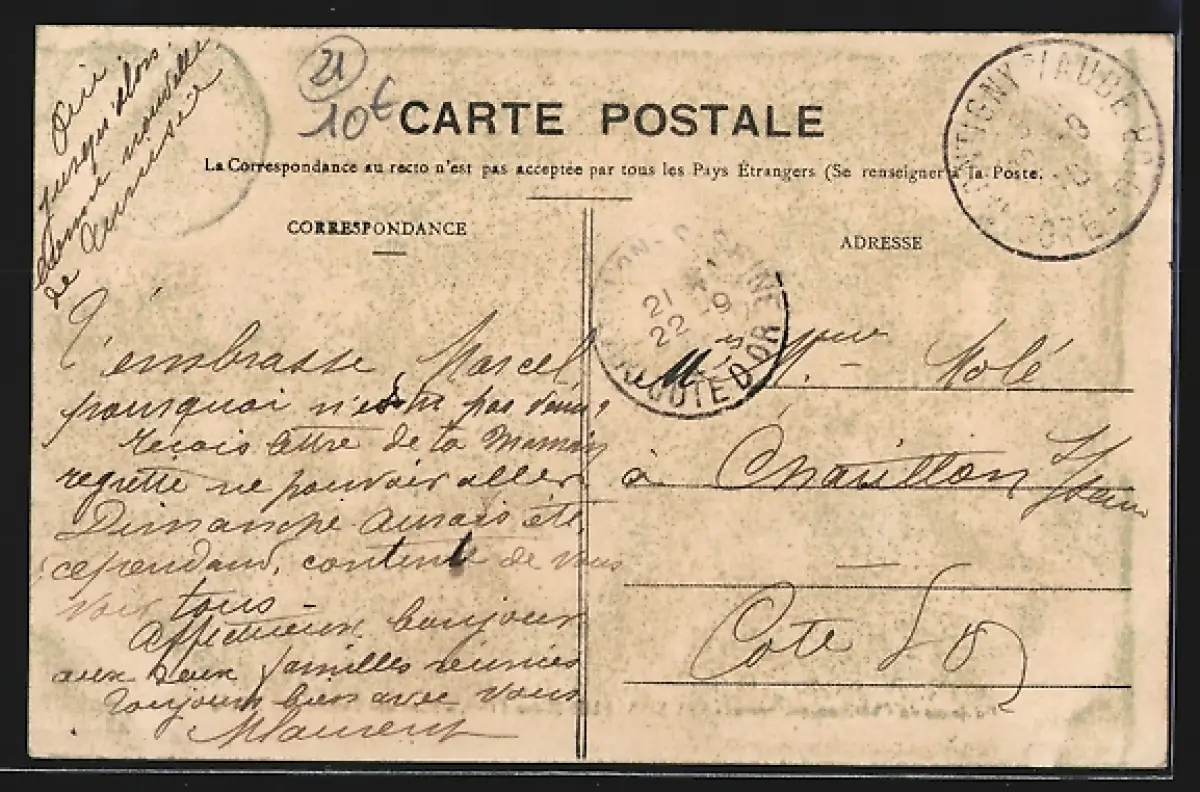 21
10€
CARTE POSTALE
La Correspondance au recto n'est pas acceptée par tous les Pays Étrangers (Se renseigner à la Poste.
CORRESPONDANCE
ADRESSE
Oui
jusqu'alors
aucune nouvelle
de
T'embrasse Marcel
pourquoi n'es tu pas venu?
reçois lettre de ta Maman
regrette ne pouvoir aller
Dimanche aurais été
cependant, content de vous
voir tous -
Affectueux bonjour
aux deux familles réunies
Toujours bien avec vous
MLaurent
21 - 9
22
COTE D'OR
MONTIGNY S/ AUBE
COTE-D'OR
Molé
à Chatillon s/ Seine
Cote d'Or